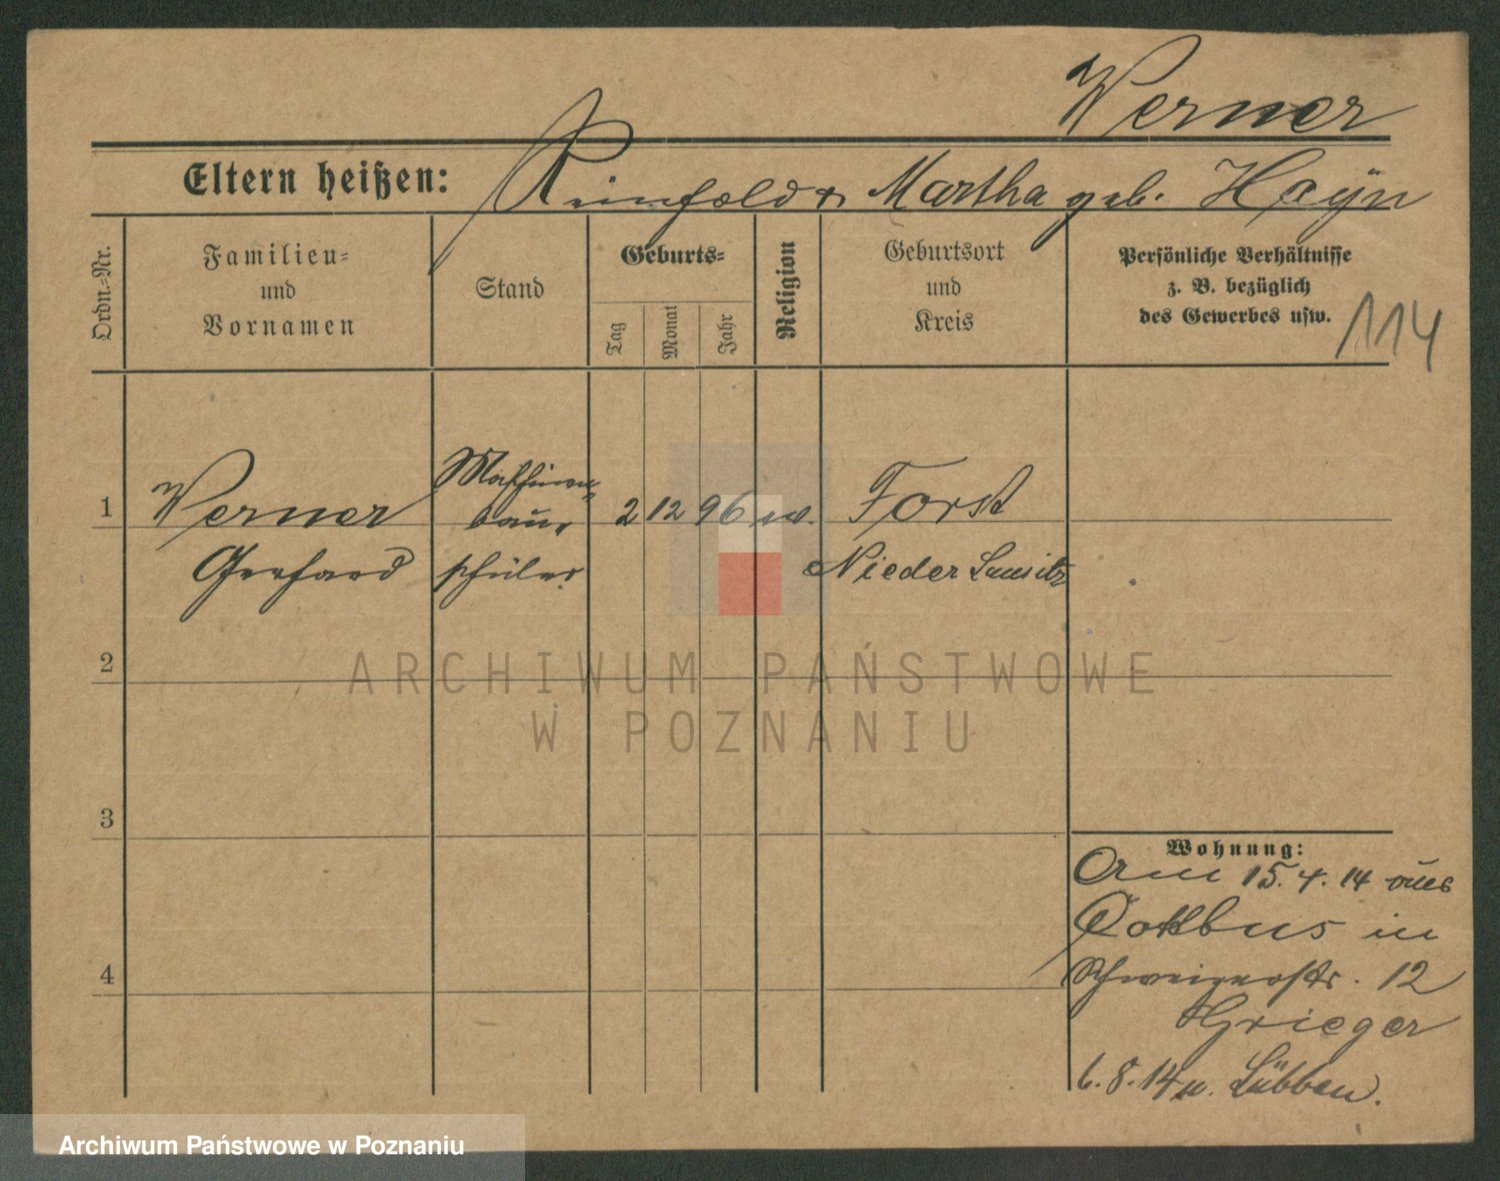 Werner
Eltern heißen: Reinhold & Martha geb. Hayn
Ordn.-Nr.
Familien-
und
Vornamen
Stand
Geburts-
Tag
Monat
Jahr
Religion
Geburtsort
und
Kreis
Persönliche Verhältnisse
z. B. bezüglich
des Gewerbes usw.
114
1 Werner Maschinen- 2 12 96 ev. Forst
bau-
Gerhard schüler Nieder Lausitz
2
ARCHIWUM PAŃSTWOWE
W POZNANIU
3
Wohnung:
Am 15.4.14 aus
Cottbus in
12
Grieger
6.8.14 n. Lübben.
4
Archiwum Państwowe w Poznaniu